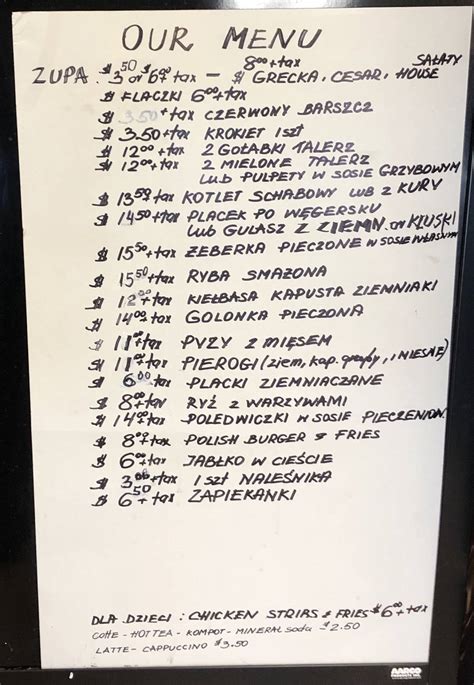 OUR MENU
8⁰⁰+tax SAŁATY
ZUPA $3.50 or $6⁰⁰+tax - $ GRECKA, CESAR, HOUSE
$ FLACZKI 6⁰⁰+tax
$ 3.50+tax CZERWONY BARSZCZ
$ 3.50+tax KROKIET 1szt
$ 12⁰⁰+tax 2 GOŁABKI TALERZ
$ 12⁰⁰+tax 2 MIELONE TALERZ
LUB PULPETY W SOSIE GRZYBOWYM
$ 13⁵⁰+tax KOTLET SCHABOWY LUB Z KURY
$ 14⁵⁰+tax PLACEK PO WĘGERSKU
LUB GULASZ Z ZIEMN. or KLUSKI
$ 15⁵⁰+tax ŻEBERKA PIECZONE W SOSIE WŁASNYM
$ 15⁵⁰+tax RYBA SMAŻONA
$ 12⁰⁰+tax KIEŁBASA KAPUSTA ZIEMNIAKI
$ 14⁰⁰+tax GOLONKA PIECZONA
$ 11⁰⁰+tax PYZY Z MIĘSEM
$ 11⁰⁰+tax PIEROGI (ziem, kap. grzyby, i MIĘSNE)
$ 6⁰⁰+tax PLACKI ZIEMNIACZANE
$ 8⁰⁰+tax RYŻ Z WARZYWAMI
$ 14⁰⁰+tax POLEDWICZKI W SOSIE PIECZENIOW.
$ 8⁰⁰+tax POLISH BURGER & FRIES
$ 6⁰⁰+tax JABŁKO W CIEŚCIE
$ 3⁰⁰+tax 1szt NALEŚNIKA
$ 6⁵⁰+tax ZAPIEKANKI
DLA DZIECI: CHICKEN STRIBS & FRIES $6⁰⁰+tax
COffE - HOT TEA - KOMPOT - MINERAL soda - $2.50
LATTE - CAPPUCCINO $3.50
AARCO